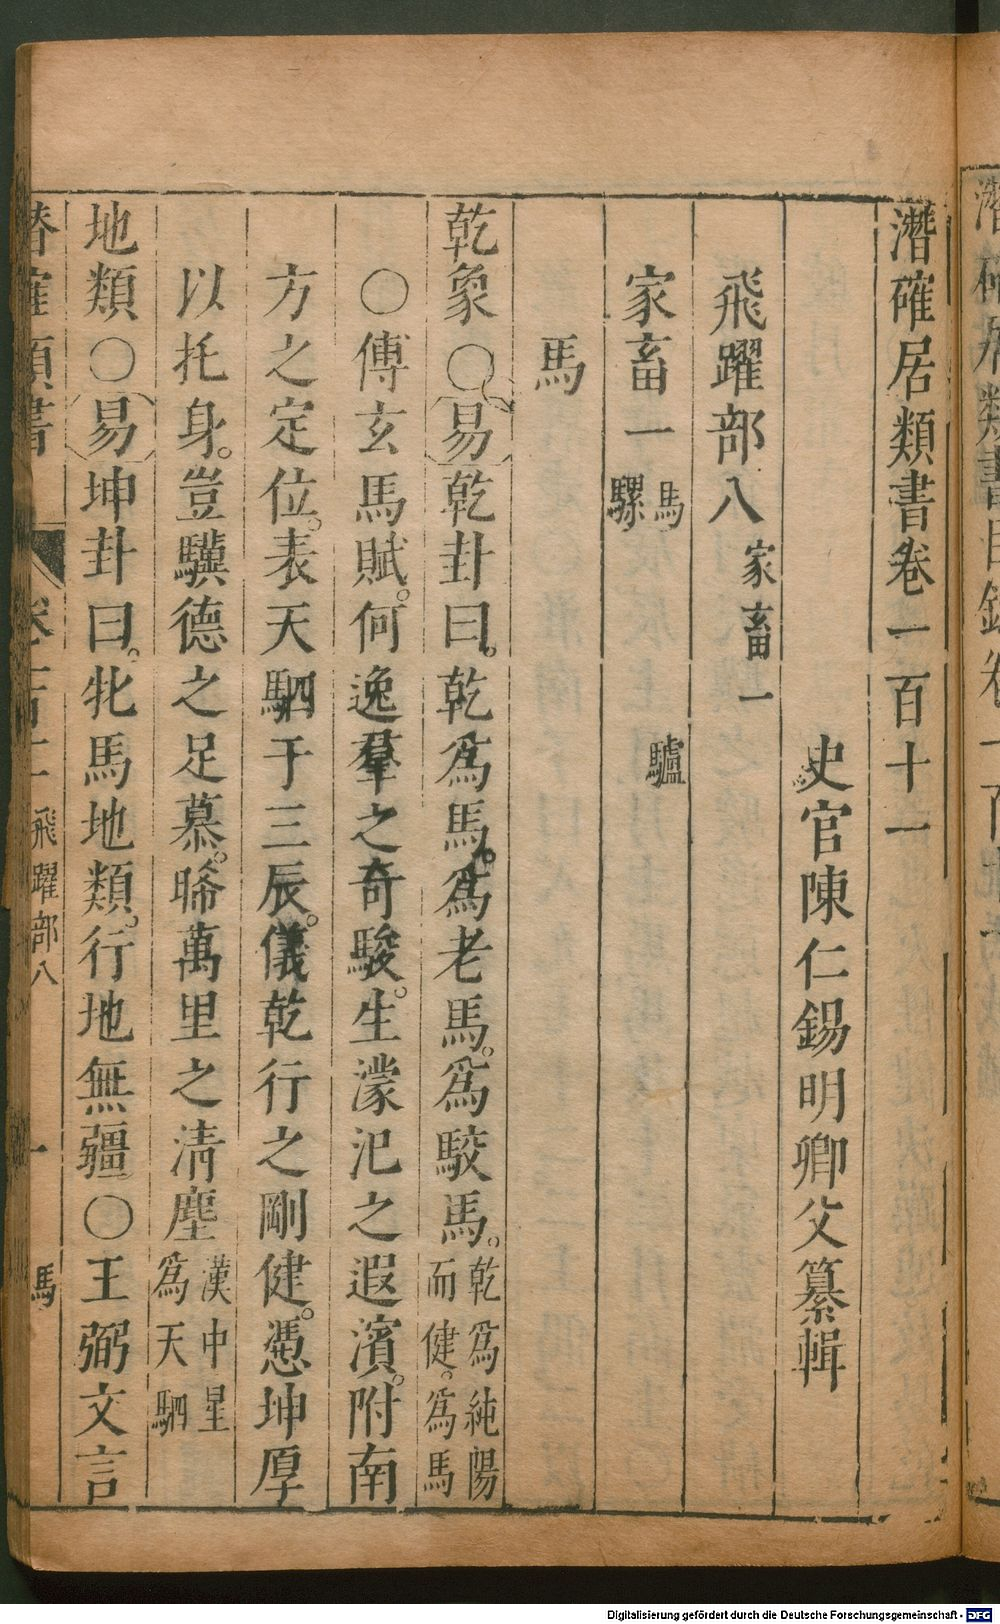 潛確居類書卷一百十一
史官陳仁錫明卿父纂輯
飛躍部八 家畜一
家畜一 馬 驢 騾
馬
乾象○易乾卦曰。乾爲馬。爲老馬。爲駁馬。乾爲純陽而健。爲馬
○傅玄馬賦。何逸羣之奇駿。生濛汜之遐濱。附南
方之定位。表天駟于三辰。儀乾行之剛健。憑坤厚
以托身。豈驥德之足慕。晞萬里之清塵 漢中星爲天駟
地類○易坤卦曰。牝馬地類。行地無疆○王弼文言
飛躍部八 一 馬
Digitalisierung gefördert durch die Deutsche Forschungsgemeinschaft - DFG